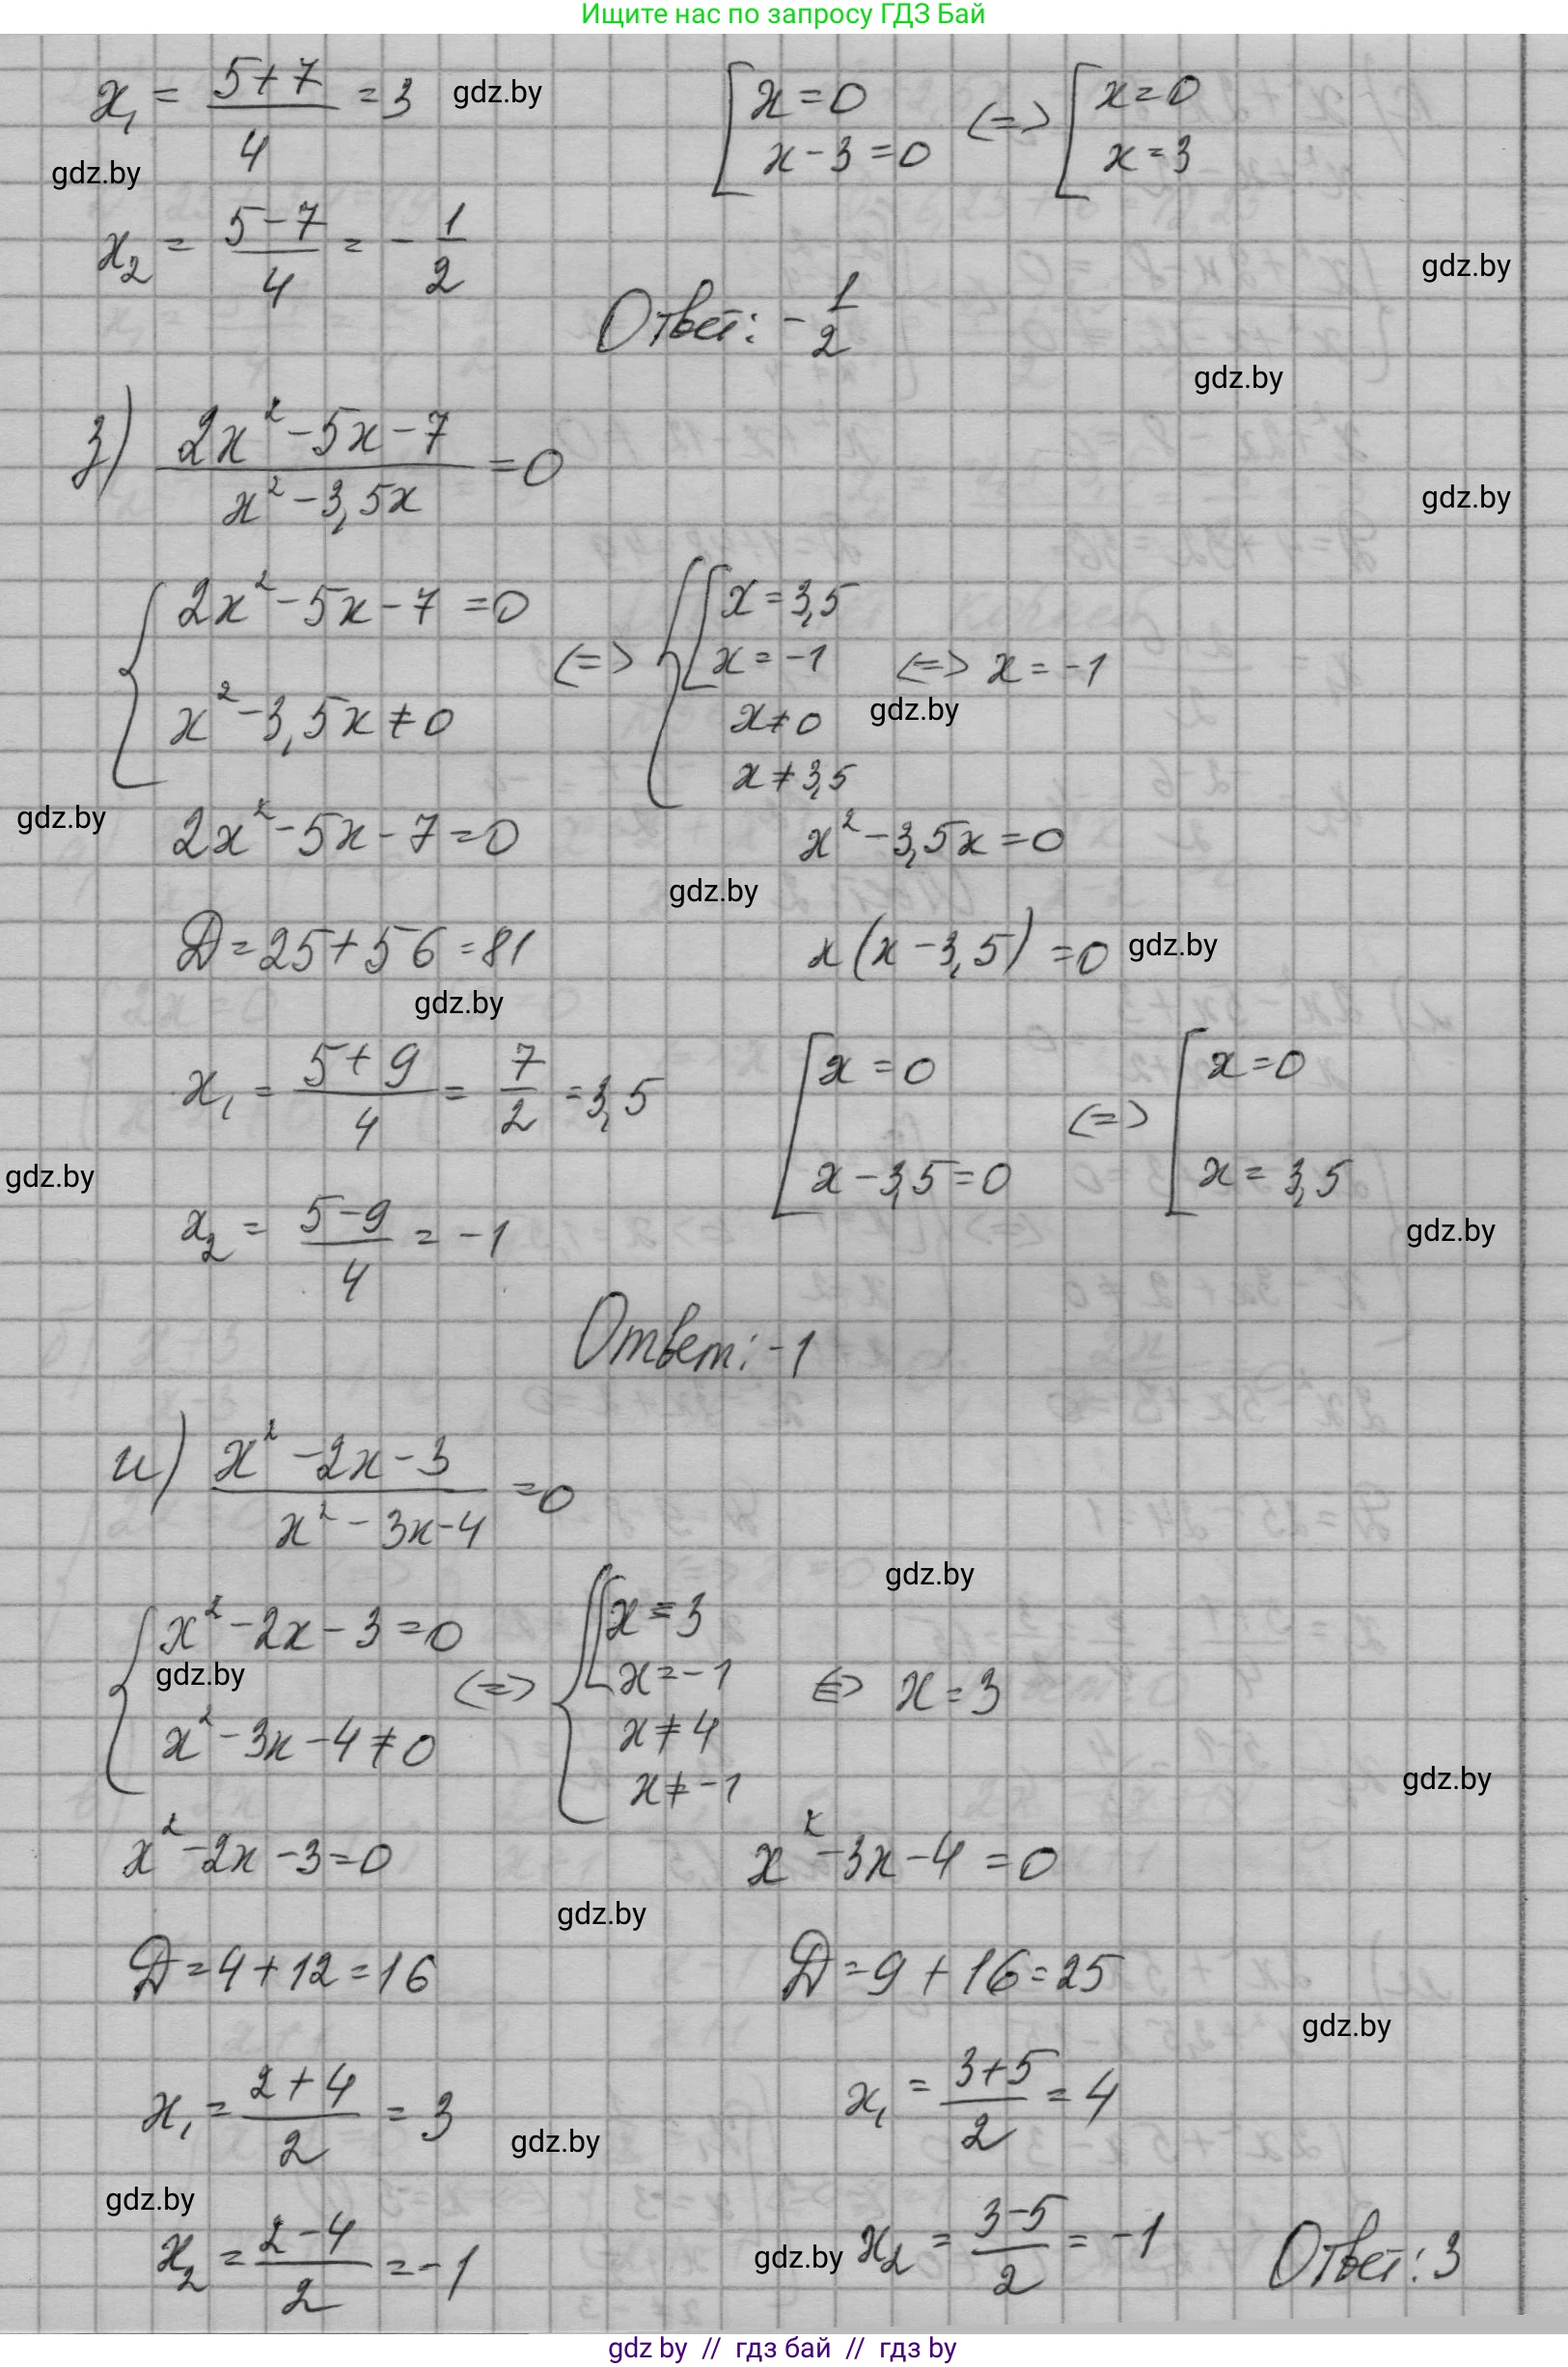 Ищите нас по запросу ГДЗ Бай
x₁ = (5+7)/4 = 3 gdz.by [ x=0 ; x-3=0 (=> [ x=0 ; x=3
gdz.by
x₂ = (5-7)/4 = -1/2
gdz.by
Ответ: -1/2
gdz.by
з) (2x²-5x-7)/(x²-3,5x) =0
gdz.by
{ 2x²-5x-7=0 ; x²-3,5x≠0 (=> { [ x=3,5 ; x=-1 ; x≠0 ; x≠3,5 (=> x=-1
gdz.by
gdz.by
2x²-5x-7=0 x²-3,5x=0
gdz.by
D=25+56=81 x(x-3,5)=0 gdz.by
gdz.by
x₁ = (5+9)/4 = 7/2 =3,5 [ x=0 ; x-3,5=0 (=> [ x=0 ; x=3,5
gdz.by
x₂ = (5-9)/4 = -1
gdz.by
Ответ: -1
и) (x²-2x-3)/(x²-3x-4) =0
gdz.by
{ x²-2x-3=0 ; x²-3x-4≠0 (=> { [ x=3 ; x=-1 ; x≠4 ; x≠-1 (=> x=3
gdz.by
gdz.by
x²-2x-3=0 x²-3x-4=0
gdz.by
D=4+12=16 D=9+16=25
gdz.by
x₁ = (2+4)/2 = 3 x₁ = (3+5)/2 = 4
gdz.by
gdz.by
x₂ = (2-4)/2 = -1 gdz.by x₂ = (3-5)/2 = -1 Ответ: 3
gdz by // гдз бай // гдз by